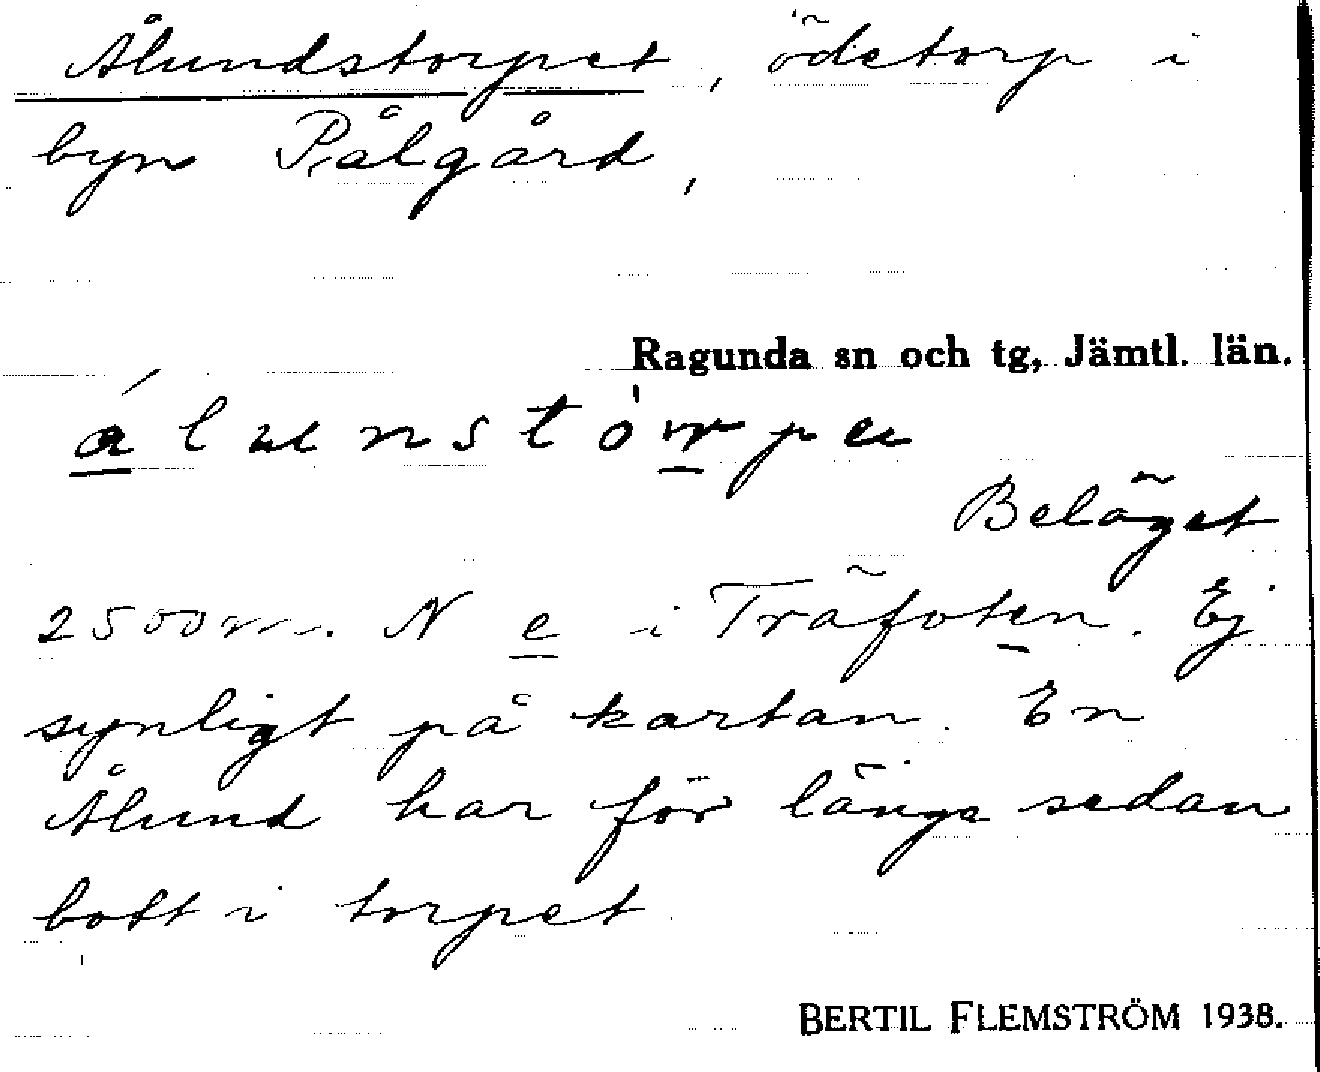 Ålundstorpet, ödetorp i
byn Pålgård,
Ragunda sn och tg, Jämtl. län.
ålunstórpα
Beläget
2500 m. N e i Träfoten. Ej
synligt på kartan. En
Ålund har för länge sedan
bott i torpet.
BERTIL FLEMSTRÖM 1938.